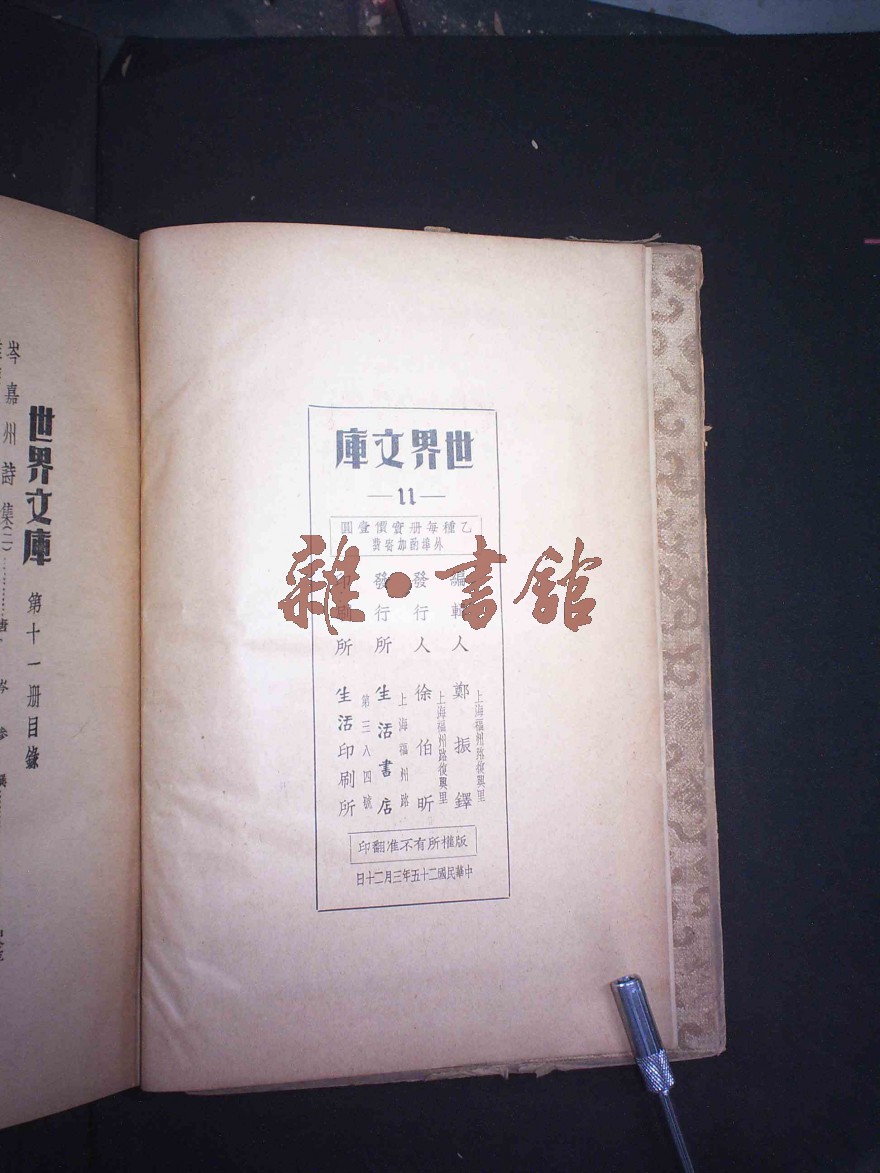 世界文庫
—11—
乙種每册實價壹圓
外埠酌加寄費
編輯人 鄭振鐸
上海福州路復興里
發行人 徐伯昕
上海福州路復興里
發行所 生活書店
上海福州路
第三八四號
印刷所 生活印刷所
版權所有不准翻印
中華民國二十五年三月二十日
雜·書館
世界文庫 第十一册目錄
岑嘉州詩集(二)……唐 岑參撰